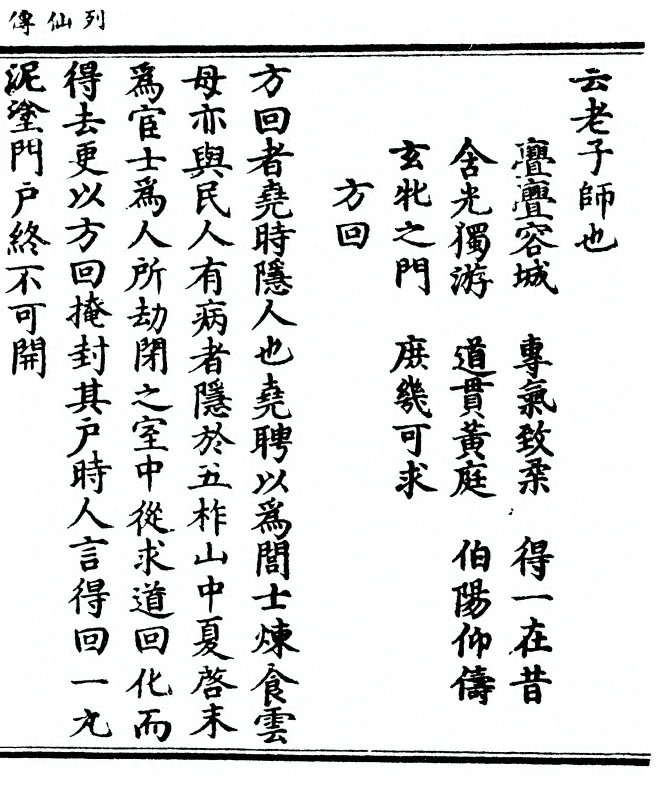 列仙傳
云老子師也
亹亹容城 專氣致柔 得一在昔
含光獨游 道貫黃庭 伯陽仰儔
玄牝之門 庶幾可求
方回
方回者堯時隱人也堯聘以爲閭士煉食雲
母亦與民人有病者隱於五柞山中夏啓末
爲宦士爲人所劫閉之室中從求道回化而
得去更以方回掩封其戶時人言得回一丸
泥塗門戶終不可開